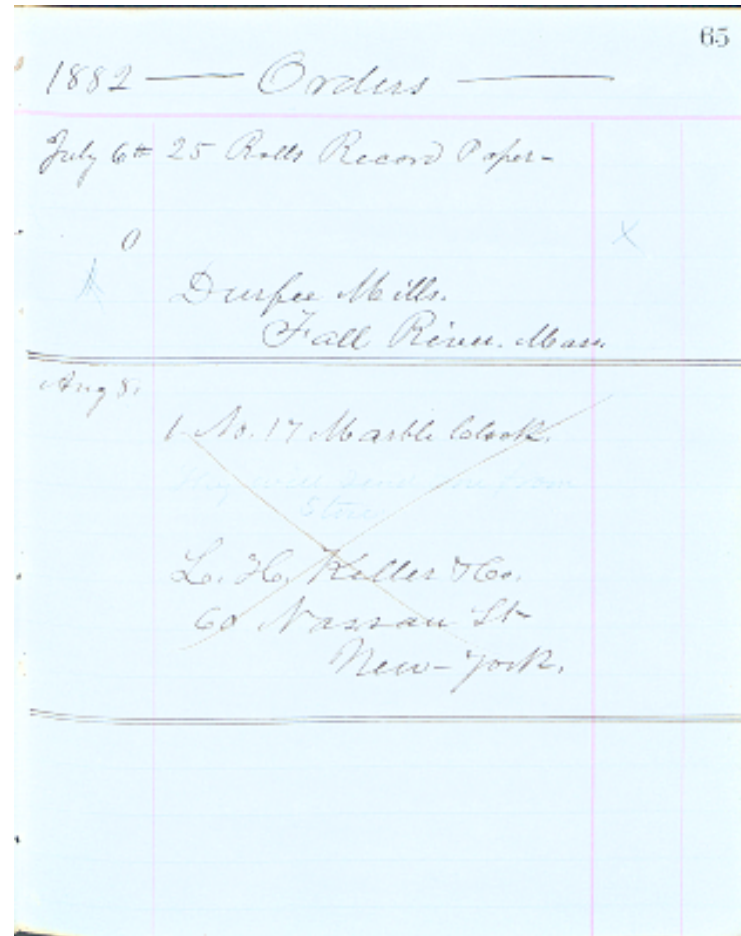 65
1882 — Orders —
July 6th 25 Rolls Record Paper-
0 X
Durfee Mills.
Fall River. Mass.
Aug 8.
1 No. 17 Marble Clock.
will send one from
Store
L. H. Keller & Co.
60 Nassau St-
New-York.